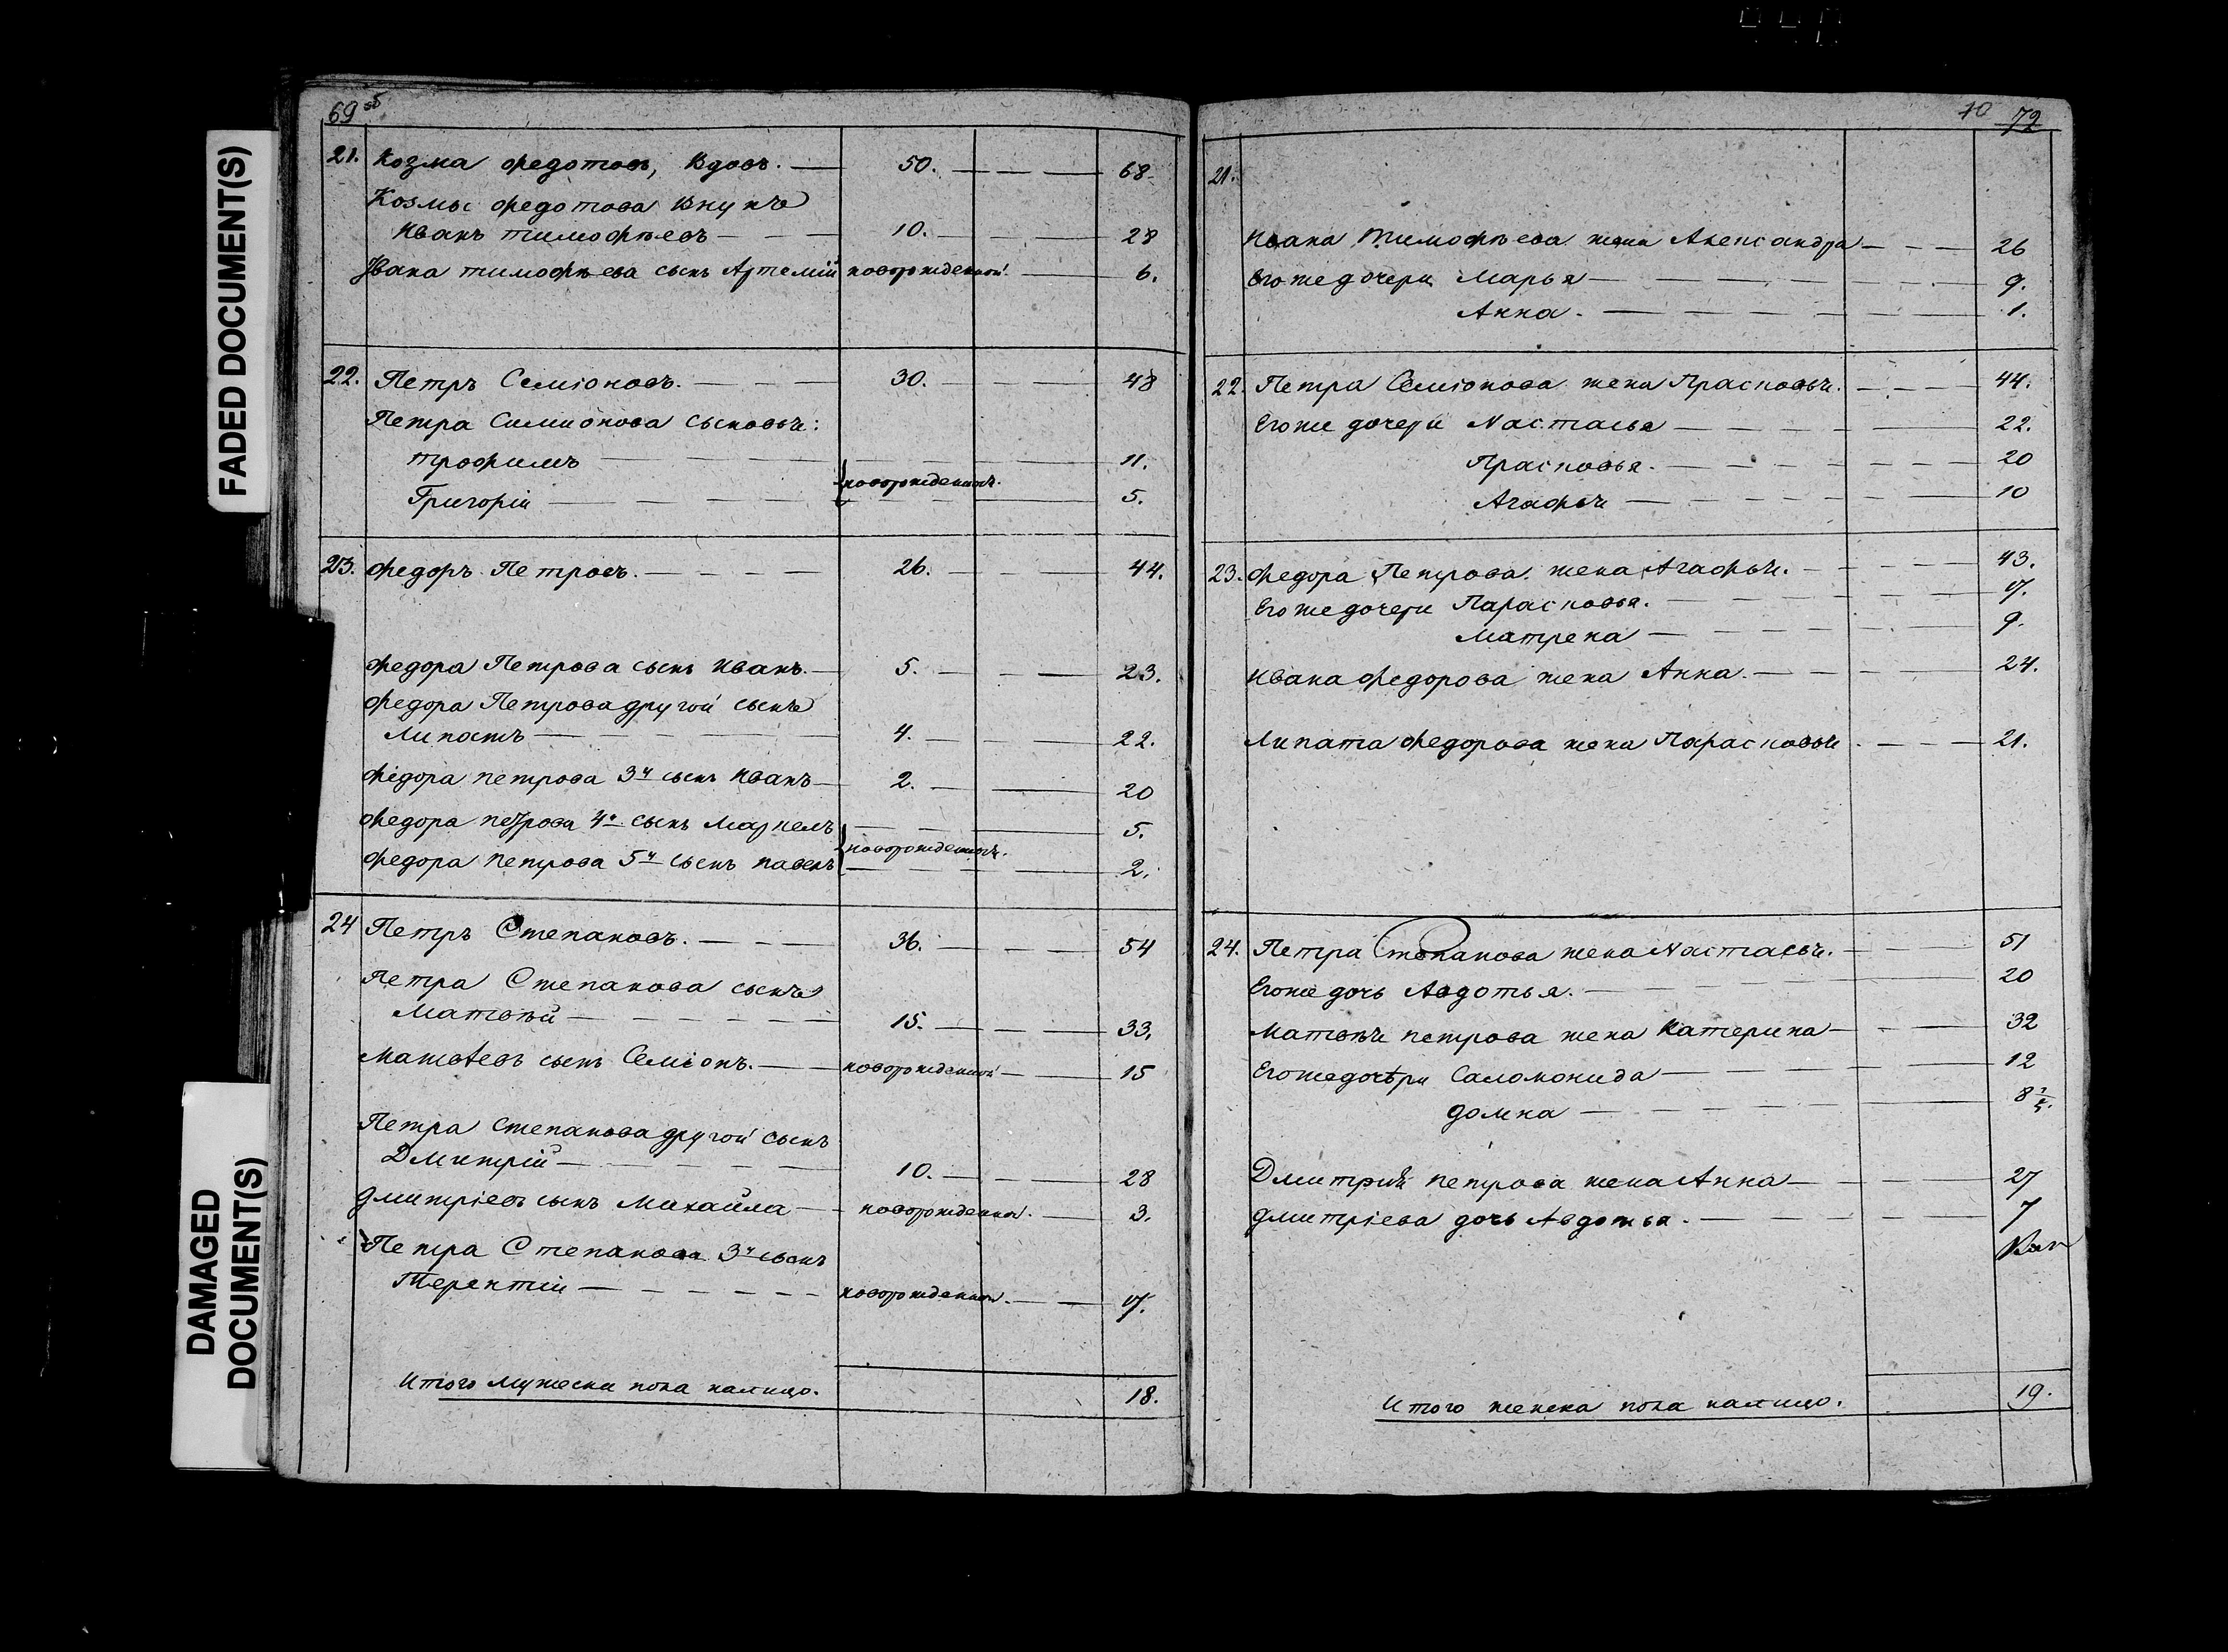 FADED DOCUMENT(S)
DAMAGED
DOCUMENT(S)
69 об
21. Козма Федотовъ, Вдовъ. 50. 68
Козмы Федотова Внукъ
Иванъ Тимофѣевъ 10. 28
Ивана Тимофѣева сынъ Артемiй новорожденной 6.
22. Петръ Семiоновъ. 30. 48
Петра Симионова Сыновья:
Трофимъ 11.
новорожденныя.
Григорiи 5.
23. Федоръ Петровъ. 26. 44.
Федора Петрова сынъ Иванъ. 5. 23.
Федора Петрова другой сынъ
Липатъ 4. 22.
Федора петрова 3й сынъ Иванъ 2. 20
Федора петрова 4й сынъ Маркелъ 5.
новорожденныя.
Федора петрова 5й сынъ павелъ 2.
24 Петръ Степановъ. 36. 54
Петра Степанова сынъ
Матвѣй 15. 33.
Матвѣевъ сынъ Семiонъ. новорожденной 15
Петра Степанова другой сынъ
Дмитрiй 10. 28
Дмитрiевъ сынъ Михайла новорожденна. 3.
Петра Степанова 3й сынъ
Терентiи новорожденной. 17.
Итого мужеска пола налицо. 18.
70 72
21.
Ивана Тимофѣева жена Александра 26
Его же дочери Марья 9.
Анна. 1.
22. Петра Семiонова жена Прасковья. 44.
Его же дочери Настасья 22.
Прасковья. 20
Агафья 10
23. Федора Петрова жена Агафья. 43.
Его же дочери Парасковья. 17.
Матрена 9.
Ивана Федорова жена Анна. 24.
Липата Федорова жена Парасковья 21.
24. Петра Степанова жена Настасья. 51
Его же дочь Авдотья. 20
Матвѣя петрова жена Катерина 32
Его же дочѣри Саломонида 12
Домна 8
Дмитрия петрова жена Анна 27
Дмитрiева дочь Авдотья. 7
Итого женска пола налицо. 19.